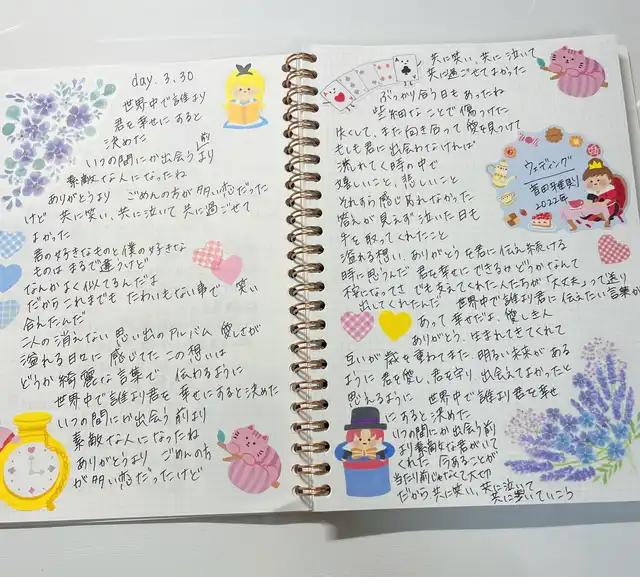 day. 3.30
世界中で誰より
君を幸せにすると
決めた
いつの間にか出会う前より
素敵な人になったね
ありがとうより ごめんの方が多い恋だった
けど 共に笑い、共に泣いて 共に過ごせて
よかった
君の好きなものと僕の好きな
ものは まるで違うけど
なんかよく似てるんだよ
だからこれまでも たわいもない事で 笑い
合えたんだ
二人の消えない 思い出のアルバム 愛しさが
溢れる日々に 感じてた この想いは
どうか綺麗な言葉で 伝わるように
世界中で誰より君を 幸せにすると決めた
いつの間にか出会う 前より
素敵な人になったね
ありがとうより ごめんの方
が多い恋だったけど
共に笑い、共に泣いて
共に過ごせてよかった
ぶつかり合う日もあったね
些細なことで傷つけた
また向き合って 愛を見つけて
もしも君に出会わなければ
流れてく時の中で
嬉しいこと、悲しいこと
それすら感じれなかった
答えが見えず泣いた日も
手を取ってくれたこと
溢れる想い、ありがとうを君に伝え続ける
時に思うんだ 君を幸せにできるかどうかなんて
不安になってさ でも支えてくれた人たちが"大丈夫"って送り
出してくれたんだ 世界中で誰より君に伝えたい言葉が
あって 幸せだよ、愛しき人
ありがとう、生まれてきてくれて
互いが歳を重ねてまた、明るい未来がある
ように 君を愛し、君を守り 出会えてよかったと
思えるように 世界中で誰より君を幸せ
にすると決めた
いつの間にか出会う前
より素敵な君がいて
くれた 今あることが
当たり前じゃなくて大切
だから共に笑い、共に泣いて
共に歩いていこう
ウェディング
吉田
2022年